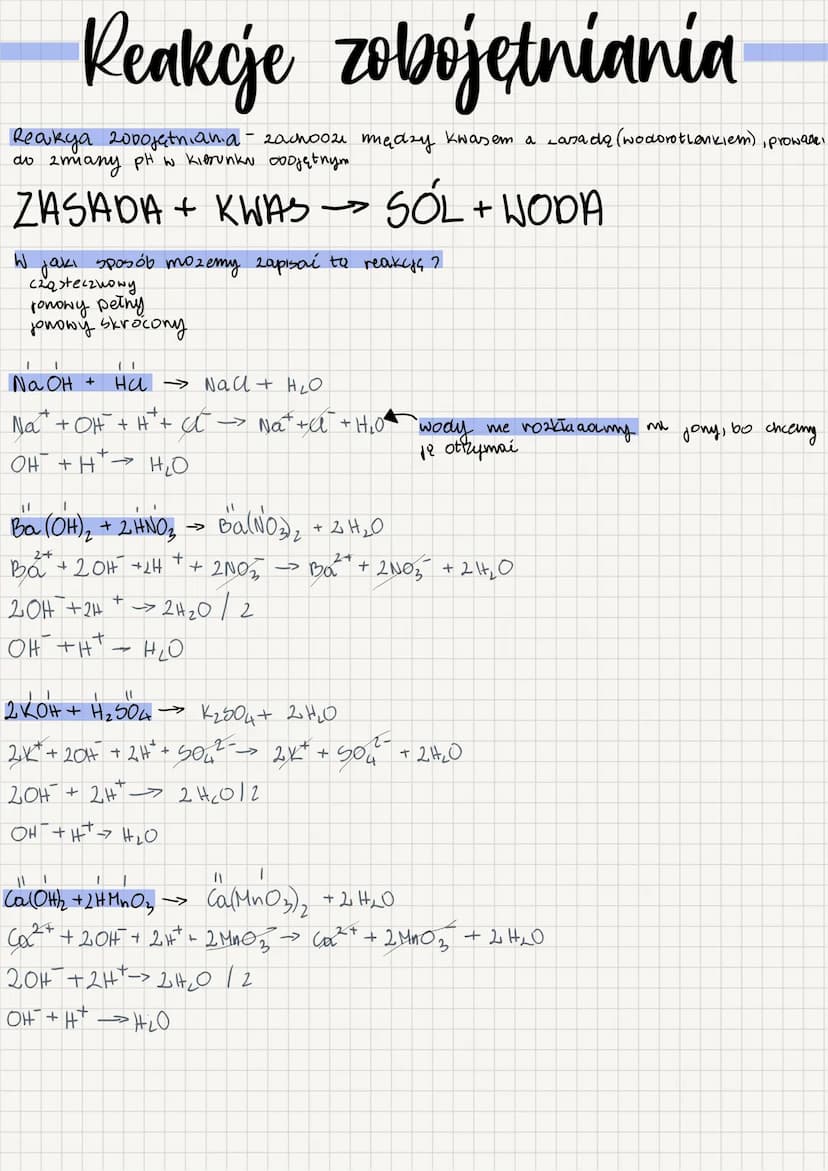 Reakcje zobojętniania
Reakcja zobojętniania - zachodzi między kwasem a zasadą (wodorotlenkiem), prowadzi
do zmiany pH w kierunku obojętnym
ZASADA + KWAS → SÓL + WODA
W jaki sposób możemy zapisać tą reakcję?
cząsteczkowy
jonowy pełny
jonowy skrócony
NaOH + HCl → NaCl + H₂O
Na⁺ + OH⁻ + H⁺ + Cl⁻ → Na⁺ + Cl⁻ + H₂O
wody nie rozkładamy na jony, bo chcemy
ją otrzymać
OH⁻ + H⁺ → H₂O
Ba(OH)₂ + 2HNO₃ → Ba(NO₃)₂ + 2H₂O
Ba²⁺ + 2OH⁻ + 2H⁺ + 2NO₃⁻ → Ba²⁺ + 2NO₃⁻ + 2H₂O
2OH⁻ + 2H⁺ → 2H₂O / 2
OH⁻ + H⁺ → H₂O
2KOH + H₂SO₄ → K₂SO₄ + 2H₂O
2K⁺ + 2OH⁻ + 2H⁺ + SO₄²⁻ → 2K⁺ + SO₄²⁻ + 2H₂O
2OH⁻ + 2H⁺ → 2H₂O / 2
OH⁻ + H⁺ → H₂O
Ca(OH)₂ + 2HMnO₃ → Ca(MnO₃)₂ + 2H₂O
Ca²⁺ + 2OH⁻ + 2H⁺ + 2MnO₃⁻ → Ca²⁺ + 2MnO₃⁻ + 2H₂O
2OH⁻ + 2H⁺ → 2H₂O / 2
OH⁻ + H⁺ → H₂O